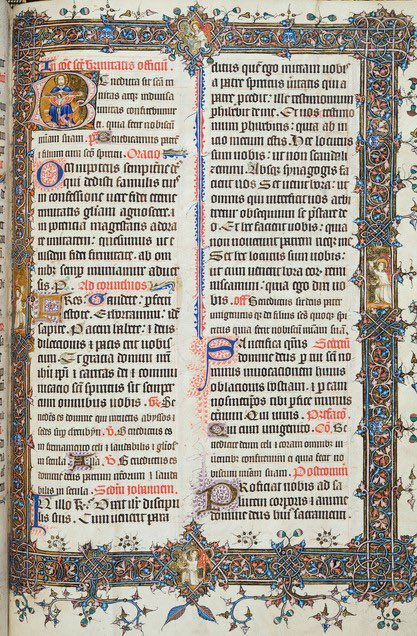 In com̄ sc̄e trinitatis officiū.
Benedicta sit sc̄a tri
nitas atq; indiuisa
unitas confitebimur
ei. quia fecit nobiscū
m̄iam suam. ps̄ Benedicamus patrē
⁊ filium cum sc̄o spiritu. Oracio
Omnipotens sempit̄ne d̄s
qui dedisti famulis tuis
in confessione uere fidei eterne
trinitatis gl̄iam agnoscere. ⁊
in potencia magestatis adora
re unitatem: quesumus ut e
iusdem fidei firmitate. ab om̄i
bus semp̄ muniamur aduer
sis. P. Ad corinthios
Fr̄es: Gaudete: p̄fecti
estote. Exortamini: idē
sapite. Pacem habete: ⁊ deus
dileccionis ⁊ pacis erit nobis
cum. Et gracia domini n̄ri
ih̄u xp̄i ⁊ caritas dei ⁊ commu
nicacio sancti spiritus sit semper
cum omnibus nobis. Gr̄. Be
nedictus es domine qui intueris abyssos ⁊
sedes sup̄ cherubyn. V̄. Benedictus es
in firmamento celi ⁊ laudabilis ⁊ gl̄iosꝰ
in secula. Alla. V̄. Benedictus es
domine deus patrum nostrorum ⁊ lauda
bilis in secula. Scd̄m Johannem.
In illo t̄. Dixit ih̄c discipu
lis suis. Cum uenerit para
clitus quē ego mittam uobis
a patre spiritum ūitatis qui a
patre p̄cedit. ille testimonium
phibebit de me. Et uos testimo
nium phibebitis: quia ab ini
cio mecum estis. Hec locutus
sum uobis: ut non scandali
zemini. Absq; synagogis fa
cient uos. Set uenit hora: ut
omnis qui interficit uos arbi
tretur obsequium se p̄stare de
o. Et hec facient uobis: quia
non nouerunt patrem neq; me.
Set hec locutus sum uobis:
ut cum uenerit hora eor̄ remi
niscamini: quia ego dixi uo
bis. off̄ Benedictus sit deus pater
unigenitus q̄; dei filius sc̄s quoq; spir̄
ritus quia fecit nobiscū m̄iam suā.
Sc̄ifica q̄sumus Secretū
domine deus p̄ tui sc̄i no
minis inuocacionem huius
oblacionis hostiam. ⁊ p̄ eam
nosmetip̄os tibi p̄fice munus
eternum. Qui uiuis. Prefacio.
Qui cum unigenito. Cō. Be
nedicite deum celi ⁊ coram omnibus ui
uentibus confitemini ei quia fecit no
biscum m̄iam suam. Postcom̄
Proficiat nobis ad sa
lutem corporis ⁊ anime
domine deus huius sacramenti